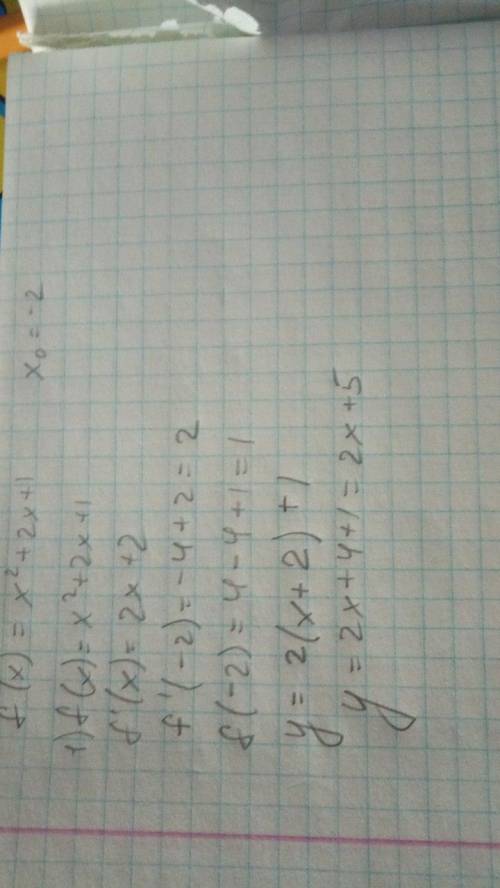 f(x) = x²+2x+1 x₀ = -2
1) f(x) = x²+2x+1
f'(x) = 2x+2
f'(-2) = -4+2 = 2
f(-2) = 4-4+1 = 1
y = 2(x+2)+1
y = 2x+4+1 = 2x+5